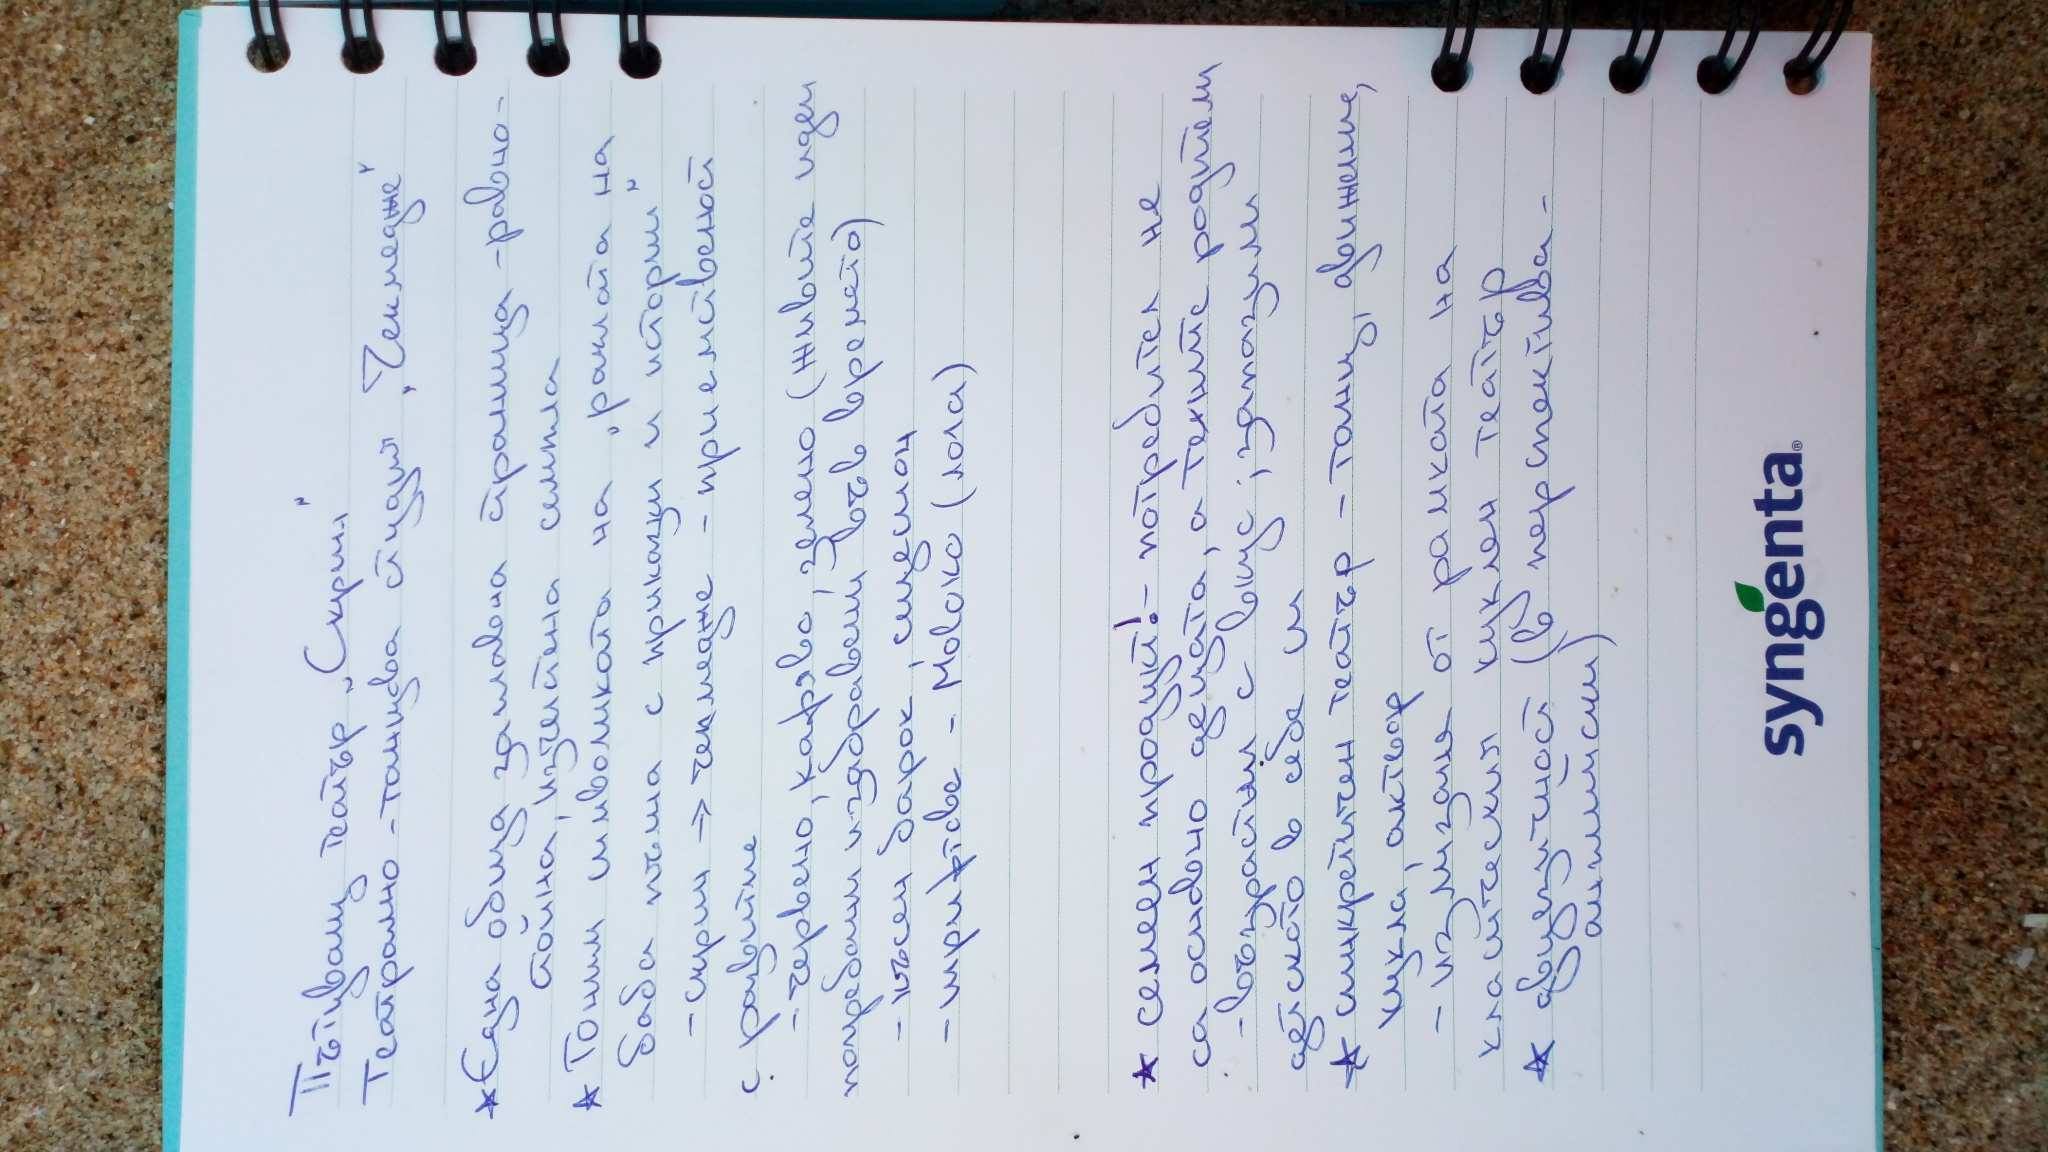 Пътуващ театър „Скрин"
Театрално-танцова студия „Чекмедже"
* Една обща заглавна страница - равно-
стойна, изчистена семпла
* Гоним символиката на „раклата на
баба пълна с приказки и истории"
- скрин → чекмедже - приемственост
с развитие
- червено, кафяво, зелено (живите идеи
погребани и забравени във времето)
- късен барок, сецесион
- шрифтове - Moloko (лога)
* семеен продукт! - потребител не
са основно децата, а техните родители
- възрастни с вкус; запазили
детското в себе си
* синкретичен театър - танц, движение,
кукла, актьор
- излизане от рамката на
класическия куклен театър
* двуезичност (в перспектива -
английски)
syngenta®